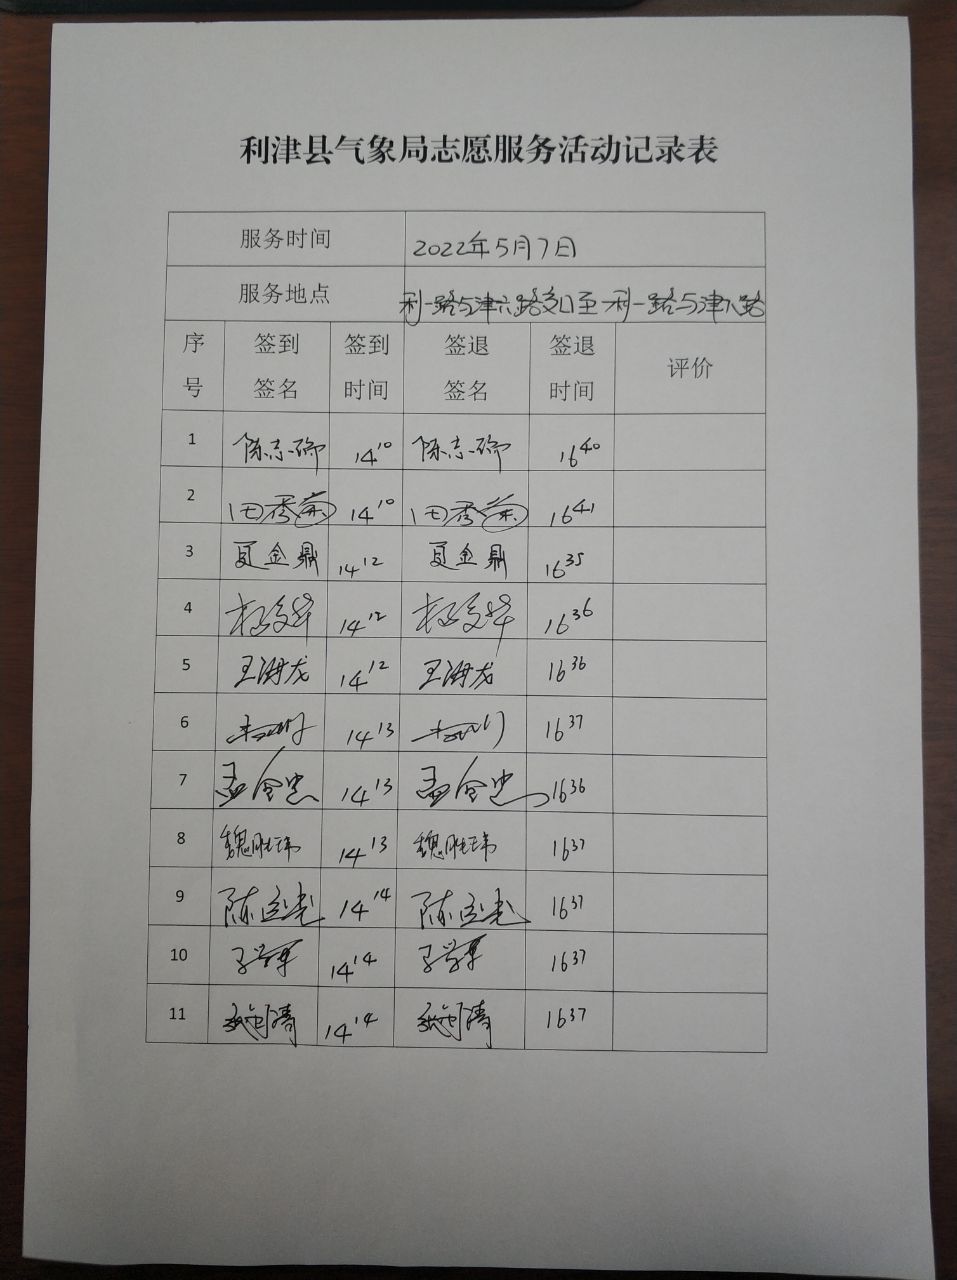 利津县气象局志愿服务活动记录表
服务时间 2022年5月7日
服务地点 利一路与津六路交口至利一路与津八路
序号 签到签名 签到时间 签退签名 签退时间 评价
1 陈志瑞 14 10 陈志瑞 16 40
2 田秀 14 10 田秀 16 41
3 夏金鼎 14 12 夏金鼎 16 35
4 14 12 16 36
5 王海龙 14 12 王海龙 16 36
6 14 13 16 37
7 孟令忠 14 13 孟令忠 16 36
8 魏胜玮 14 13 魏胜玮 16 37
9 陈 14 14 陈 16 37
10 14 14 16 37
11 14 14 16 37